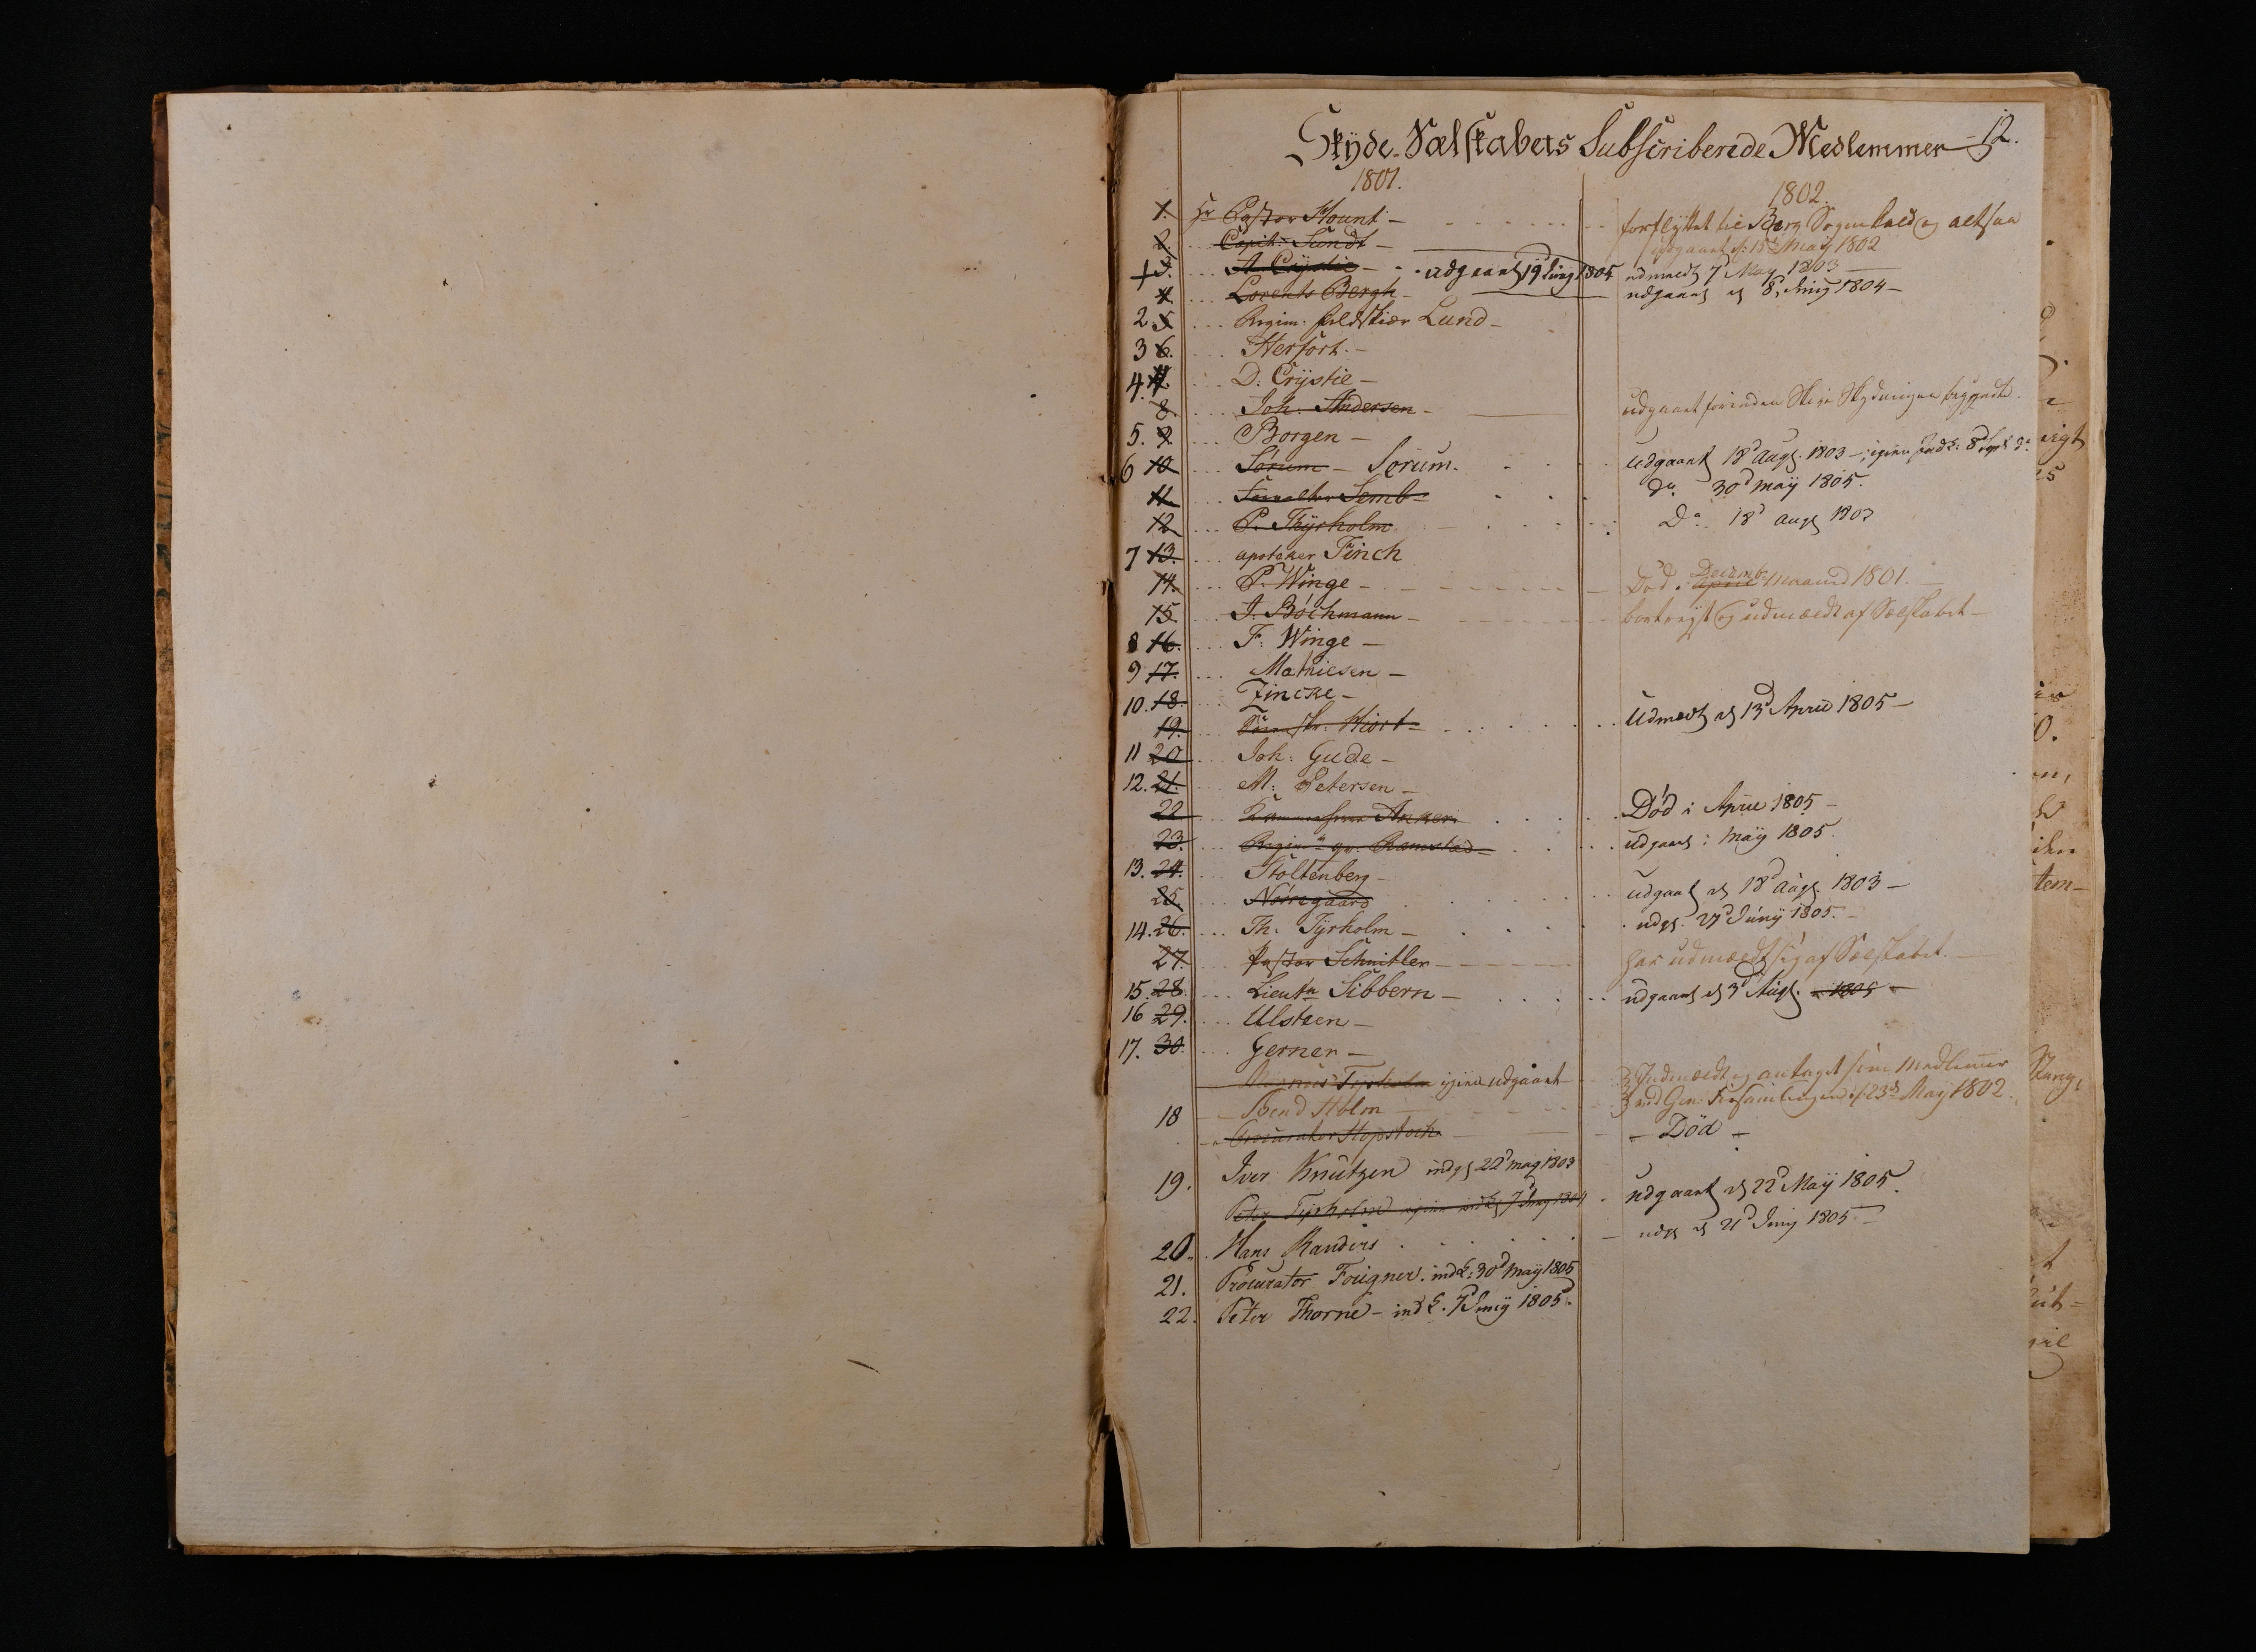 Skÿde-Sælskabets Subscriberede Medlemmer 12.
1801. 1802
1. Hr Pastor Hount - forflÿttet til Berg Sognekald og altsaa
2. Capit: Sundt - udgaaet d: 15de Maÿ 1802
+ 3. A. Crÿstie - udgaaet 19 Junÿ 1804 udmeldt 7d Maÿ 1803
4. Lorents Bergh - udgaaet d 8d Junÿ 1804 -
2. 5 Regim: feldskiær Lund -
3 6. Herfort. -
4. 7. D: Crÿstie -
8. Joh: Andersen - udgaaet forinden Skive Skydningen begyndte.
5. 9. Borgen -
6 10 Sórum - Sorum. udgaaet 18d Augs. 1803 - igien d:o
11. Semb - do 30d maÿ 1805.
12 P. Thÿrholm Do 18d augs 1803
7 13. apoteker Finch
14. P. Winge - Død i april Decembr Maaned 1801.
15. J. Bóchmann - bortreyst og udmældt af Sælskabet -
8 16. F: Winge -
9 17. Mathiesen -
10. 18. Zincke -
19. Hiort - Udmeldt d 13d April 1805 -
11 20 Joh: Gude -
12. 21. M: Petersen -
22. Anker Død i April 1805 -
23. Regim qv. Ramstad - udgaaet i maÿ 1805.
13. 24. Stoltenberg -
25. Nórregaard udgaaet d 18d augs. 1803 -
14. 26. Th: Tÿrholm - udgs. 27d Junÿ 1805. -
27. Pastor Schnitler - har udmældt sig af Sælskabet. -
15. 28 Lieutn Sibbern - udgaaet d 3d Augs. 1805 -
16 29. Ulsteen -
17. 30. Gerner -
Tÿrholm igien udgaaet Indmældt og antaget som Medlemer
18 Bend Holm ved Gen: Forsamlingen d: 23de Maÿ 1802.
Procurator Hopstock - Död -
19. Iver Knutzen indgs 22d maÿ 1803 udgaaet d 22d Maÿ 1805.
Peter Tÿrholm igien 7d Junÿ 1804 udgs d 21d Junÿ 1805 -
20. Hans Randers
21. Procurator Fougner. ind: 30d maÿ 1805
22. Peter Thorne - ind. 7d Junÿ 1805.